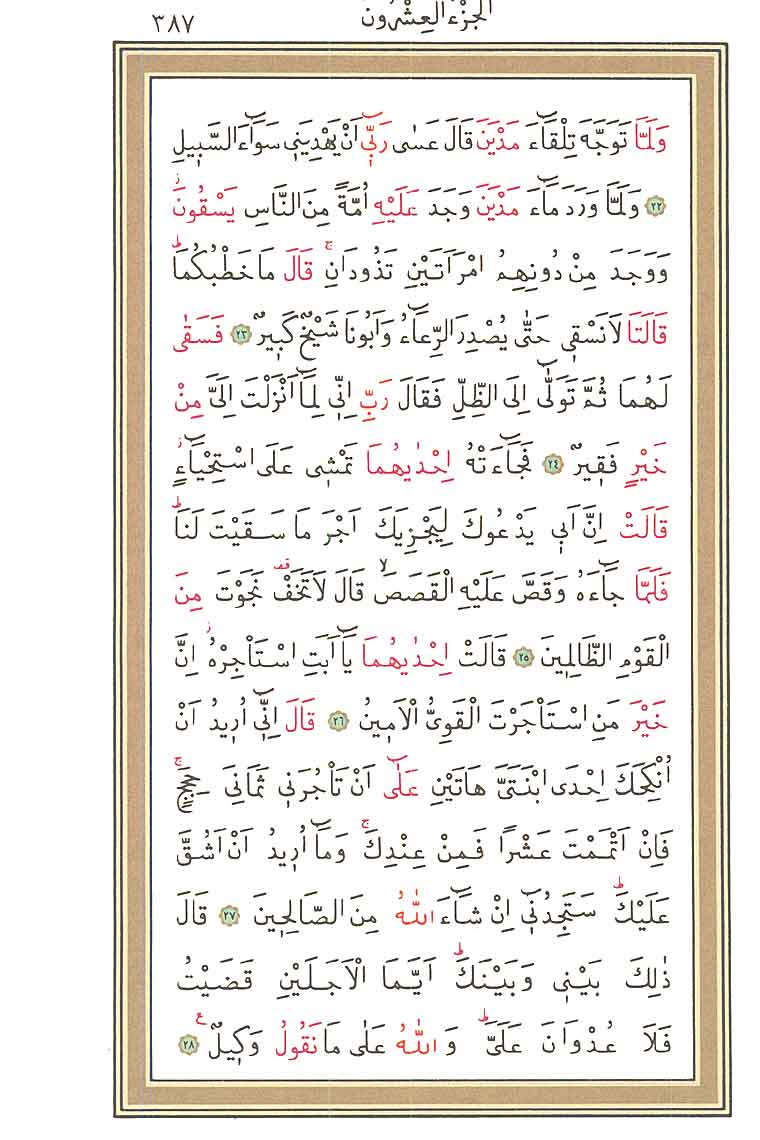 الجزء العشرون
٣٨٧
وَلَمَّا تَوَجَّهَ تِلْقَٓاءَ مَدْيَنَ قَالَ عَسٰى رَبّ۪ٓي اَنْ يَهْدِيَن۪ي سَوَٓاءَ السَّب۪يلِ
﴿٢٢﴾ وَلَمَّا وَرَدَ مَٓاءَ مَدْيَنَ وَجَدَ عَلَيْهِ اُمَّةً مِنَ النَّاسِ يَسْقُونَۘ
وَوَجَدَ مِنْ دُونِهِمُ امْرَاَتَيْنِ تَذُودَانِۚ قَالَ مَا خَطْبُكُمَاۜ
قَالَتَا لَا نَسْق۪ي حَتّٰى يُصْدِرَ الرِّعَٓاءُ وَاَبُونَا شَيْخٌ كَب۪يرٌ ﴿٢٣﴾ فَسَقٰى
لَهُمَا ثُمَّ تَوَلّٰٓى اِلَى الظِّلِّ فَقَالَ رَبِّ اِنّ۪ي لِمَٓا اَنْزَلْتَ اِلَيَّ مِنْ
خَيْرٍ فَق۪يرٌ ﴿٢٤﴾ فَجَٓاءَتْهُ اِحْدٰيهُمَا تَمْش۪ي عَلَى اسْتِحْيَٓاءٍۘ
قَالَتْ اِنَّ اَب۪ي يَدْعُوكَ لِيَجْزِيَكَ اَجْرَ مَا سَقَيْتَ لَنَاۜ
فَلَمَّا جَٓاءَهُ وَقَصَّ عَلَيْهِ الْقَصَصَۙ قَالَ لَا تَخَفْ۠ نَجَوْتَ مِنَ
الْقَوْمِ الظَّالِم۪ينَ ﴿٢٥﴾ قَالَتْ اِحْدٰيهُمَا يَٓا اَبَتِ اسْتَأْجِرْهُۘ اِنَّ
خَيْرَ مَنِ اسْتَأْجَرْتَ الْقَوِيُّ الْاَم۪ينُ ﴿٢٦﴾ قَالَ اِنّ۪ٓي اُر۪يدُ اَنْ
اُنْكِحَكَ اِحْدَى ابْنَتَيَّ هَاتَيْنِ عَلٰٓى اَنْ تَأْجُرَن۪ي ثَمَانِيَ حِجَجٍۚ
فَاِنْ اَتْمَمْتَ عَشْرًا فَمِنْ عِنْدِكَۚ وَمَٓا اُر۪يدُ اَنْ اَشُقَّ
عَلَيْكَۜ سَتَجِدُن۪ٓي اِنْ شَٓاءَ اللّٰهُ مِنَ الصَّالِح۪ينَ ﴿٢٧﴾ قَالَ
ذٰلِكَ بَيْن۪ي وَبَيْنَكَۜ اَيَّمَا الْاَجَلَيْنِ قَضَيْتُ
فَلَا عُدْوَانَ عَلَيَّۜ وَاللّٰهُ عَلٰى مَا نَقُولُ وَك۪يلٌ۟ ﴿٢٨﴾